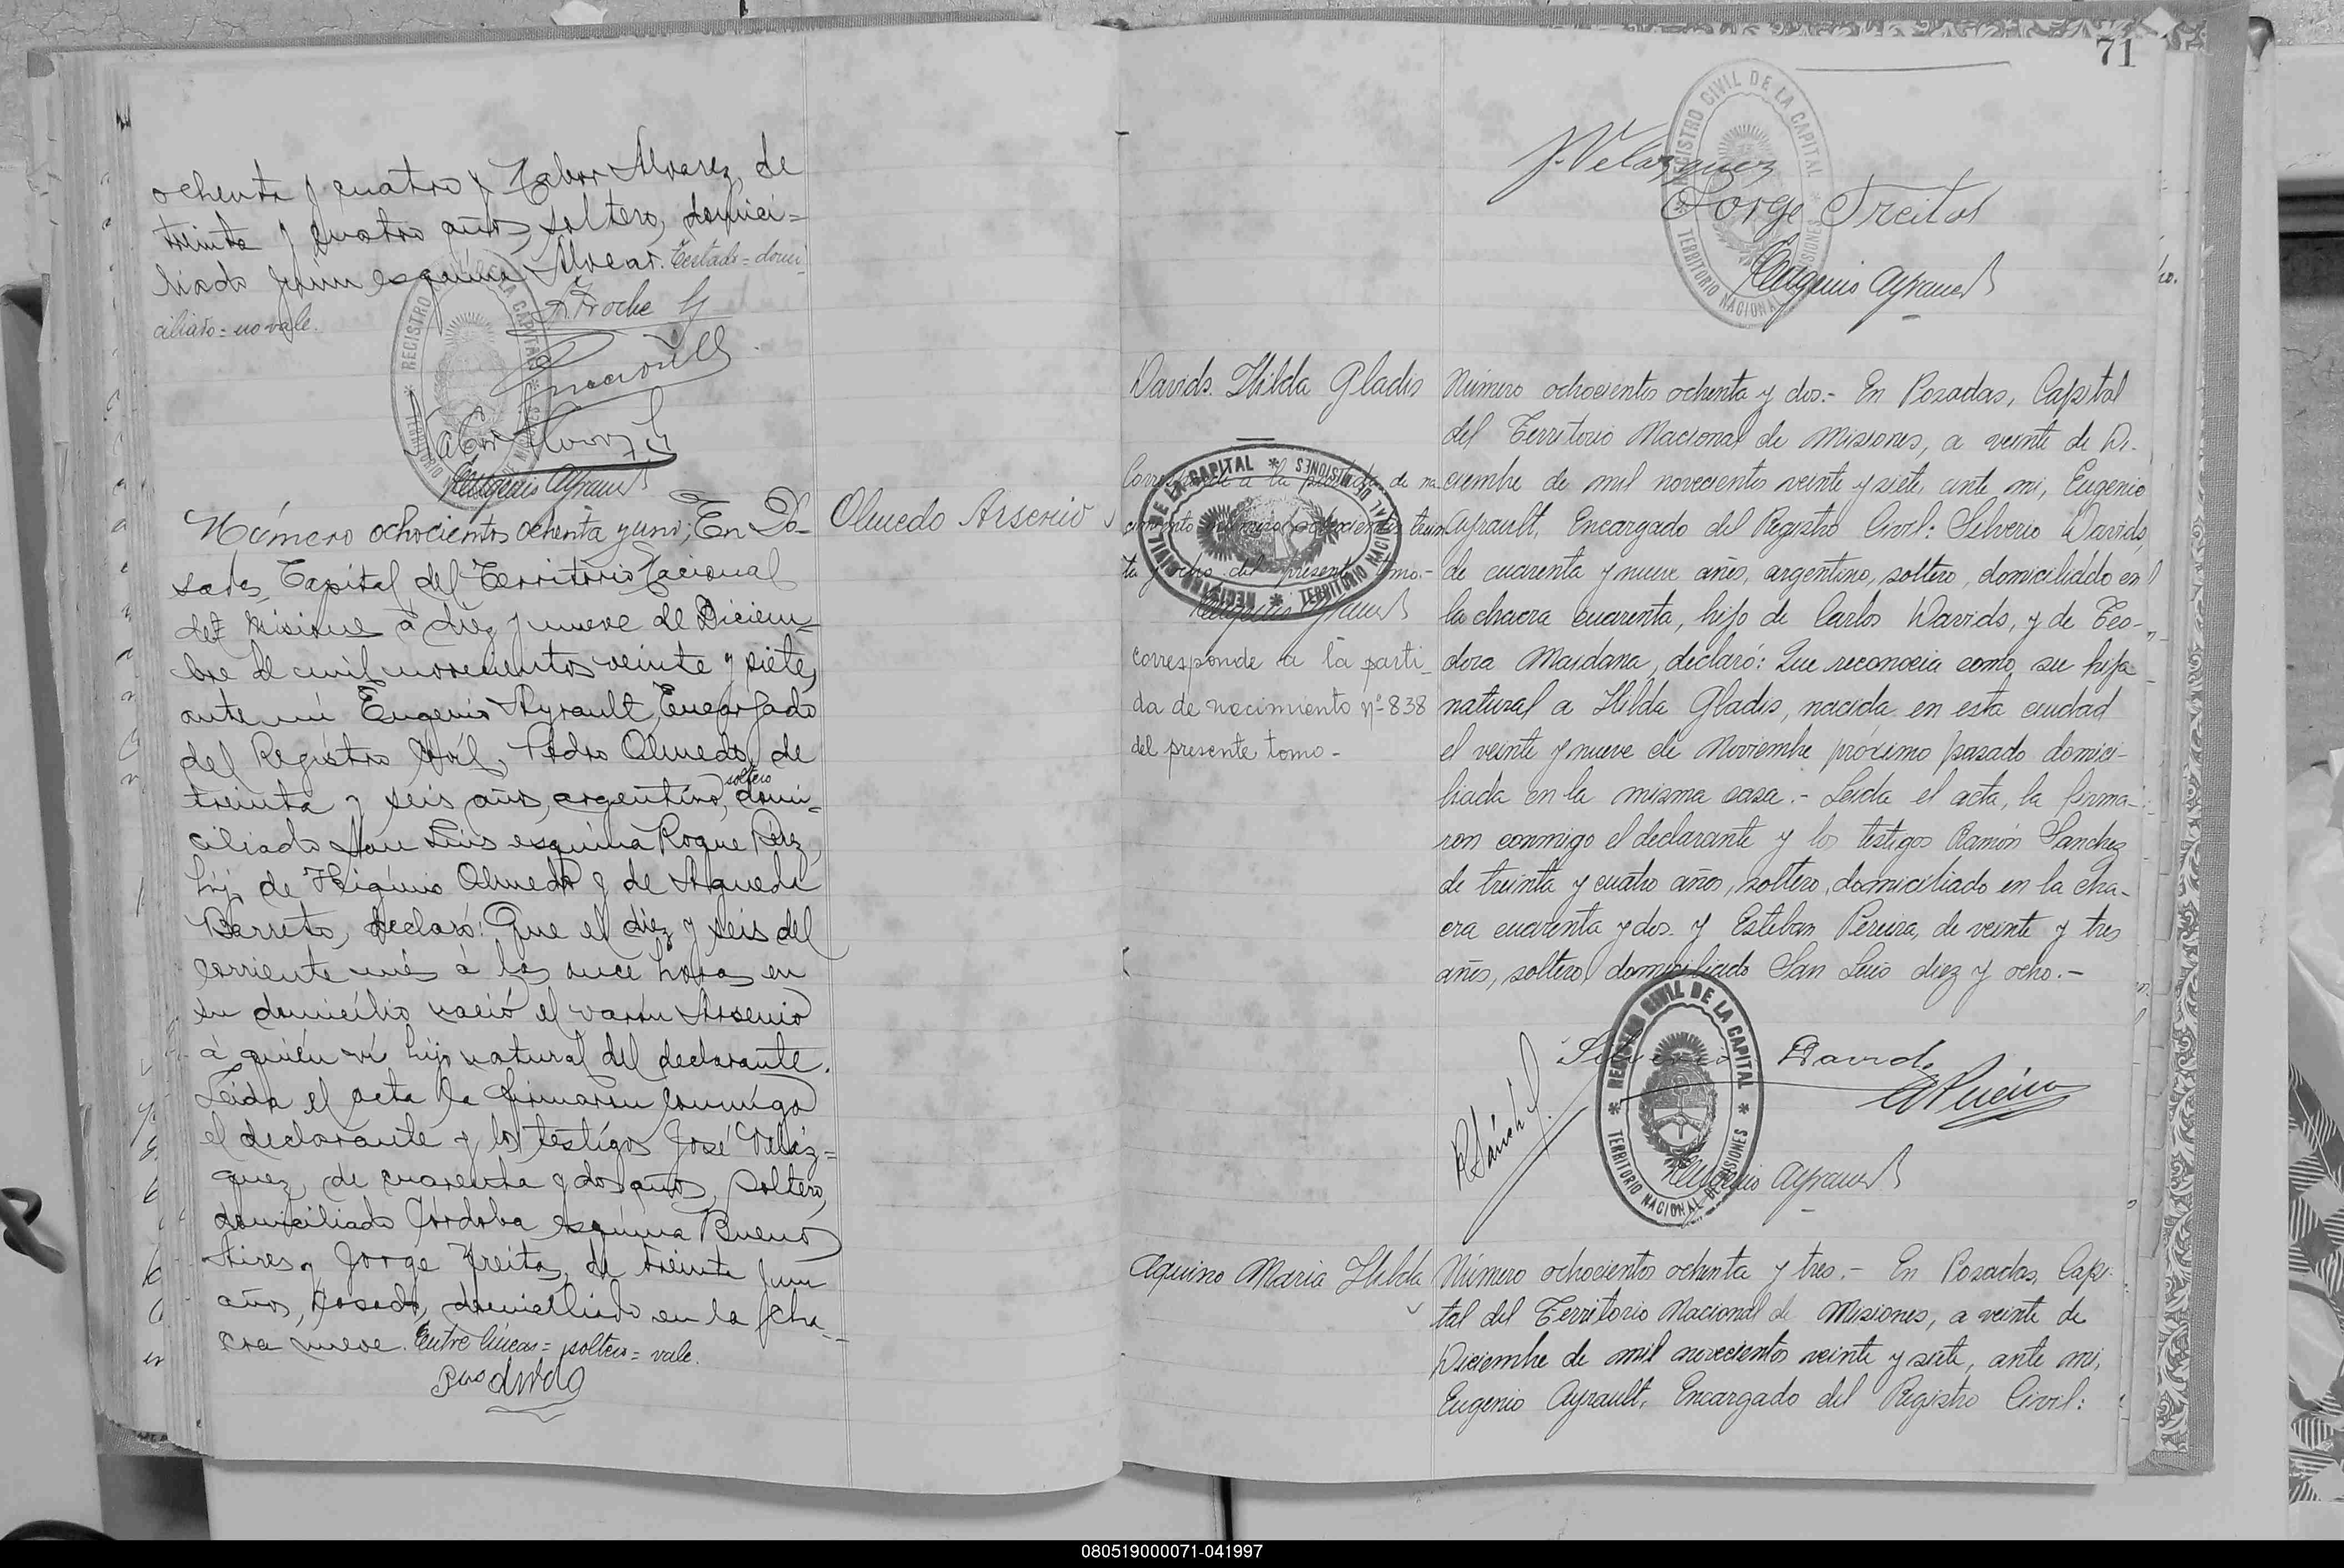 ochenta y cuatro y Nabor Alvarez, de
treinta y cuatro años, soltero, domici=
liado Junin esquina Alvear. Testado = domi
ciliado = no vale.
A. Froche
Eugenio Ayrault
Número ochocientos ochenta y uno; En Po-
sadas, Capital del Territorio Nacional
de Misiones a diez y nueve de Diciem-
bre de mil novecientos veinte y siete,
ante mi Eugenio Ayrault, Encargado
del Registro Civil, Pedro Olmedo, de
treinta y seis años, argentino, soltero domi=
ciliado San Luis esquina Roque Perez,
hijo de Higinio Olmedo y de Agueda
Barreto, declaró: Que el diez y seis del
corriente mes á las once horas en
su domicilio nació el varón Arsenio
á quién ví hijo natural del declarante.
Leida el acta la firmaron conmigo
el declarante y los testigos José Veláz=
quez, de cuarenta y dos años, soltero,
domiciliado Córdoba esquina Buenos
Aires y Jorge Freitas, de treinta y un
años, casado, domiciliado en la cha-
cra nueve. Entre líneas = soltero = vale.
Olmedo Arsenio
REGISTRO CIVIL DE LA CAPITAL * TERRITORIO NACIONAL DE MISIONES *
71
J. Velazquez
Jorge Freitas
Eugenio Ayrault
REGISTRO CIVIL DE LA CAPITAL * TERRITORIO NACIONAL DE MISIONES *
Davids. Hilda Gladis
Corresponde a la partida de na
cimiento número ochocientos trein
ta y ocho del presente tomo.-
Eugenio Ayrault
REGISTRO CIVIL DE LA CAPITAL * TERRITORIO NACIONAL DE MISIONES *
corresponde a la parti_
da de nacimiento nº 838
del presente tomo -
Número ochocientos ochenta y dos.- En Posadas, Capital
del Territorio Nacional de Misiones, a veinte de Di-
ciembre de mil novecientos veinte y siete, ante mi, Eugenio
Ayrault, Encargado del Registro Civil: Silverio Davids,
de cuarenta y nueve años, argentino, soltero, domiciliado en
la chacra cuarenta, hijo de Carlos Davids, y de Teo-
dora Maidana, declaró: Que reconocia como su hija
natural a Hilda Gladis, nacida en esta ciudad
el veinte y nueve de Noviembre próximo pasado domici-
liada en la misma casa.- Leida el acta, la firma-
ron conmigo el declarante y los testigos Ramón Sanchez
de treinta y cuatro años, soltero, domiciliado en la cha-
cra cuarenta y dos y Esteban Pereira, de veinte y tres
años, soltero, domiciliado San Luis diez y ocho.-
Silverio Davids
R Sánchez
E Pereira
Eugenio Ayrault
REGISTRO CIVIL DE LA CAPITAL * TERRITORIO NACIONAL DE MISIONES *
Aquino Maria Hilda
Número ochocientos ochenta y tres.- En Posadas, Capi-
tal del Territorio Nacional de Misiones, a veinte de
Diciembre de mil novecientos veinte y siete, ante mi,
Eugenio Ayrault, Encargado del Registro Civil:
080519000071-041997